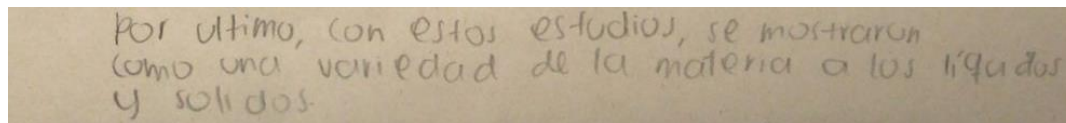 Por ultimo, con estos estudios, se mostraron
como una variedad de la materia a los líqudos
y solidos.